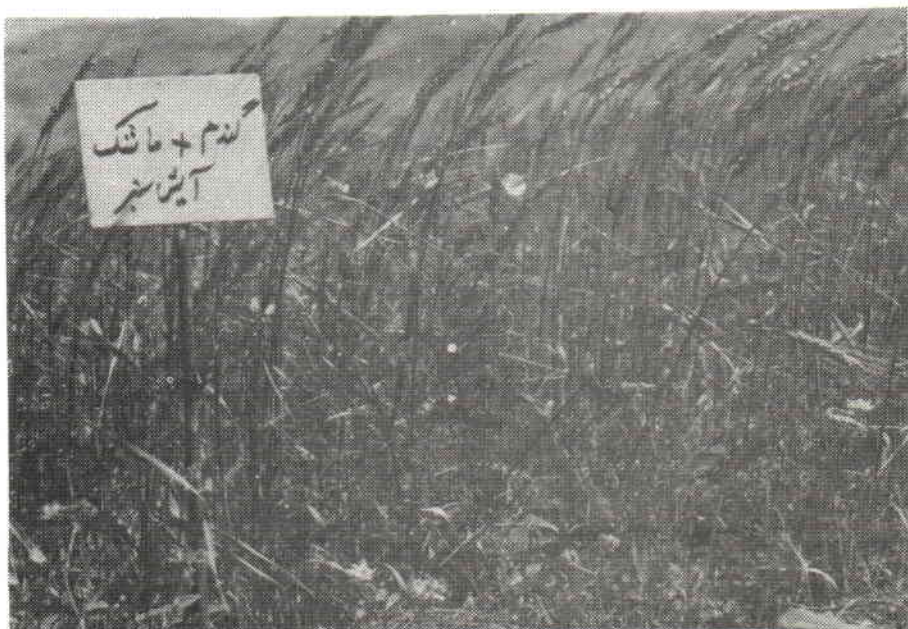 گندم + ماشک
آیش سبز